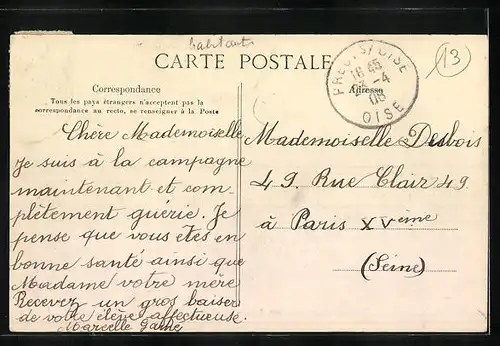 habitants
CARTE POSTALE
13
PRECY S/ OISE
16 45
23 -4
08
OISE
Correspondance
Tous les pays étrangers n'acceptent pas la
correspondance au recto, se renseigner à la Poste
Adresse
Chère Mademoiselle
Je suis à la campagne
maintenant et com-
plètement guérie. Je
pense que vous êtes en
bonne santé ainsi que
Madame votre mère
Recevez un gros baiser
de votre élève affectueuse.
Marcelle
Mademoiselle Desbois
49. Rue Clair 49
à Paris XVème
(Seine)